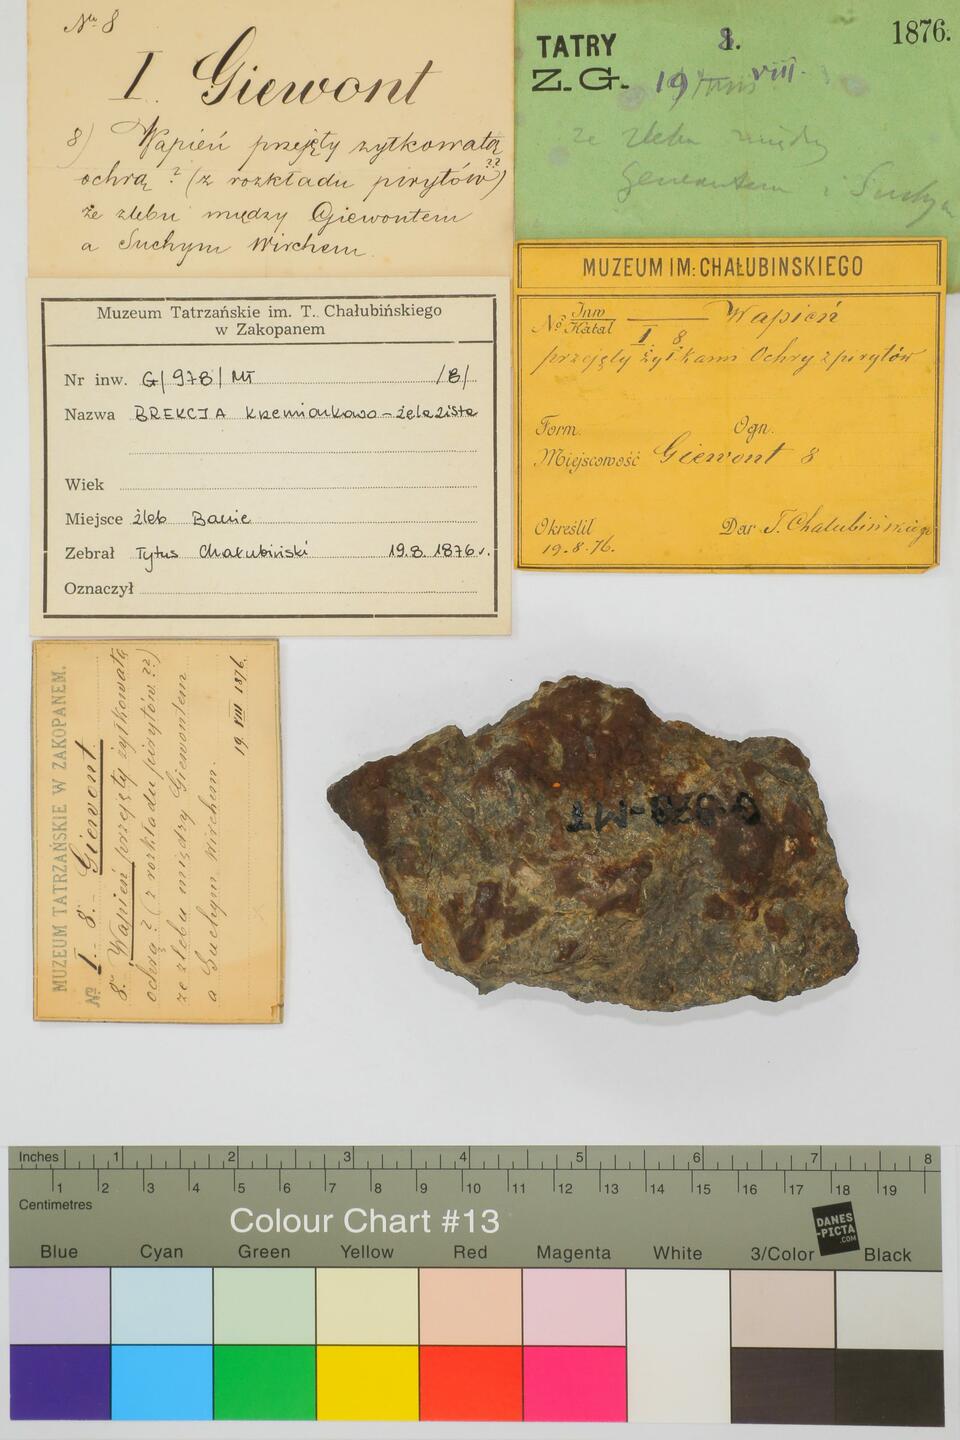 No 8
I. Giewont
8) Wapień przejęty żyłkowatą
ochrą ? (z rozkładu pirytów??)
ze żlebu między Giewontem
a Suchym Wirchem.
TATRY
8.
1876.
Z. G. 19 VIII.
ze żlebu między
Giewontem i Suchym
Muzeum Tatrzańskie im. T. Chałubińskiego
w Zakopanem
Nr inw. G/978/MT /8/
Nazwa BREKCJA krzemionkowo-żelazista
Wiek
Miejsce żleb Banie
Zebrał Tytus Chałubiński 19.8.1876 r.
Oznaczył
MUZEUM IM: CHAŁUBINSKIEGO
No Inw Wapień
Katal I. 8.
przejęty żyłkami Ochry z pirytów
Form. Ogn.
Miejscowość Giewont 8
Określił Dar T. Chałubińskiego
19.8.76.
MUZEUM TATRZAŃSKIE W ZAKOPANEM.
No I. 8. Giewont.
8. Wapień przejęty żyłkowatą
ochrą ? (z rozkładu pirytów ??)
ze żlebu między Giewontem
a Suchym Wirchem.
19. VIII 1876.
G-978-MT
Inches 1 2 3 4 5 6 7 8
1 2 3 4 5 6 7 8 9 10 11 12 13 14 15 16 17 18 19
Centimetres
Colour Chart #13
DANES
-PICTA
.COM
Blue Cyan Green Yellow Red Magenta White 3/Color Black